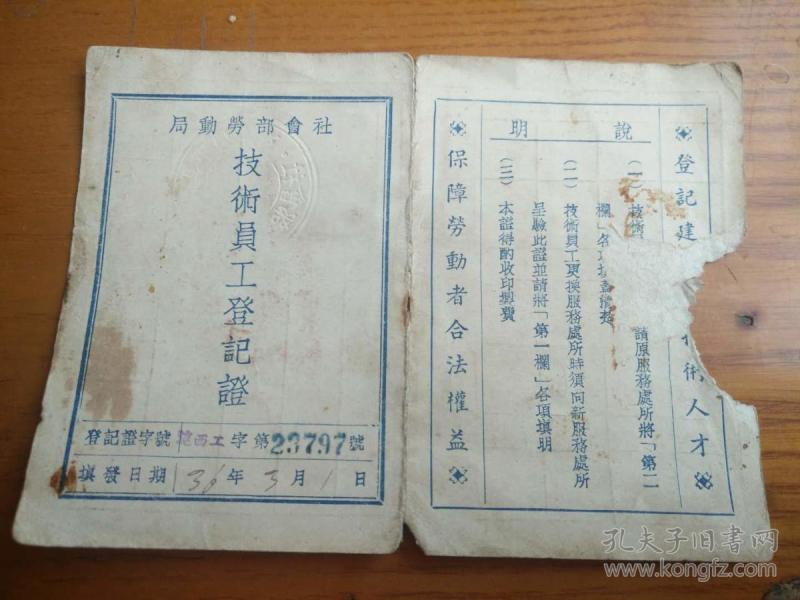 社會部勞動局
技術員工登記證
登記證字號 西工字第23797號
填發日期 36年3月1日
登記建
術人才
說明
(一) 技術
請原服務處所將「第二
欄」各項填
(二) 技術員工更換服務處所時須向新服務處所
呈驗此證並請將「第一欄」各項填明
(三) 本證得酌收印製費
保障勞動者合法權益
孔夫子旧书网
www.kongfz.com